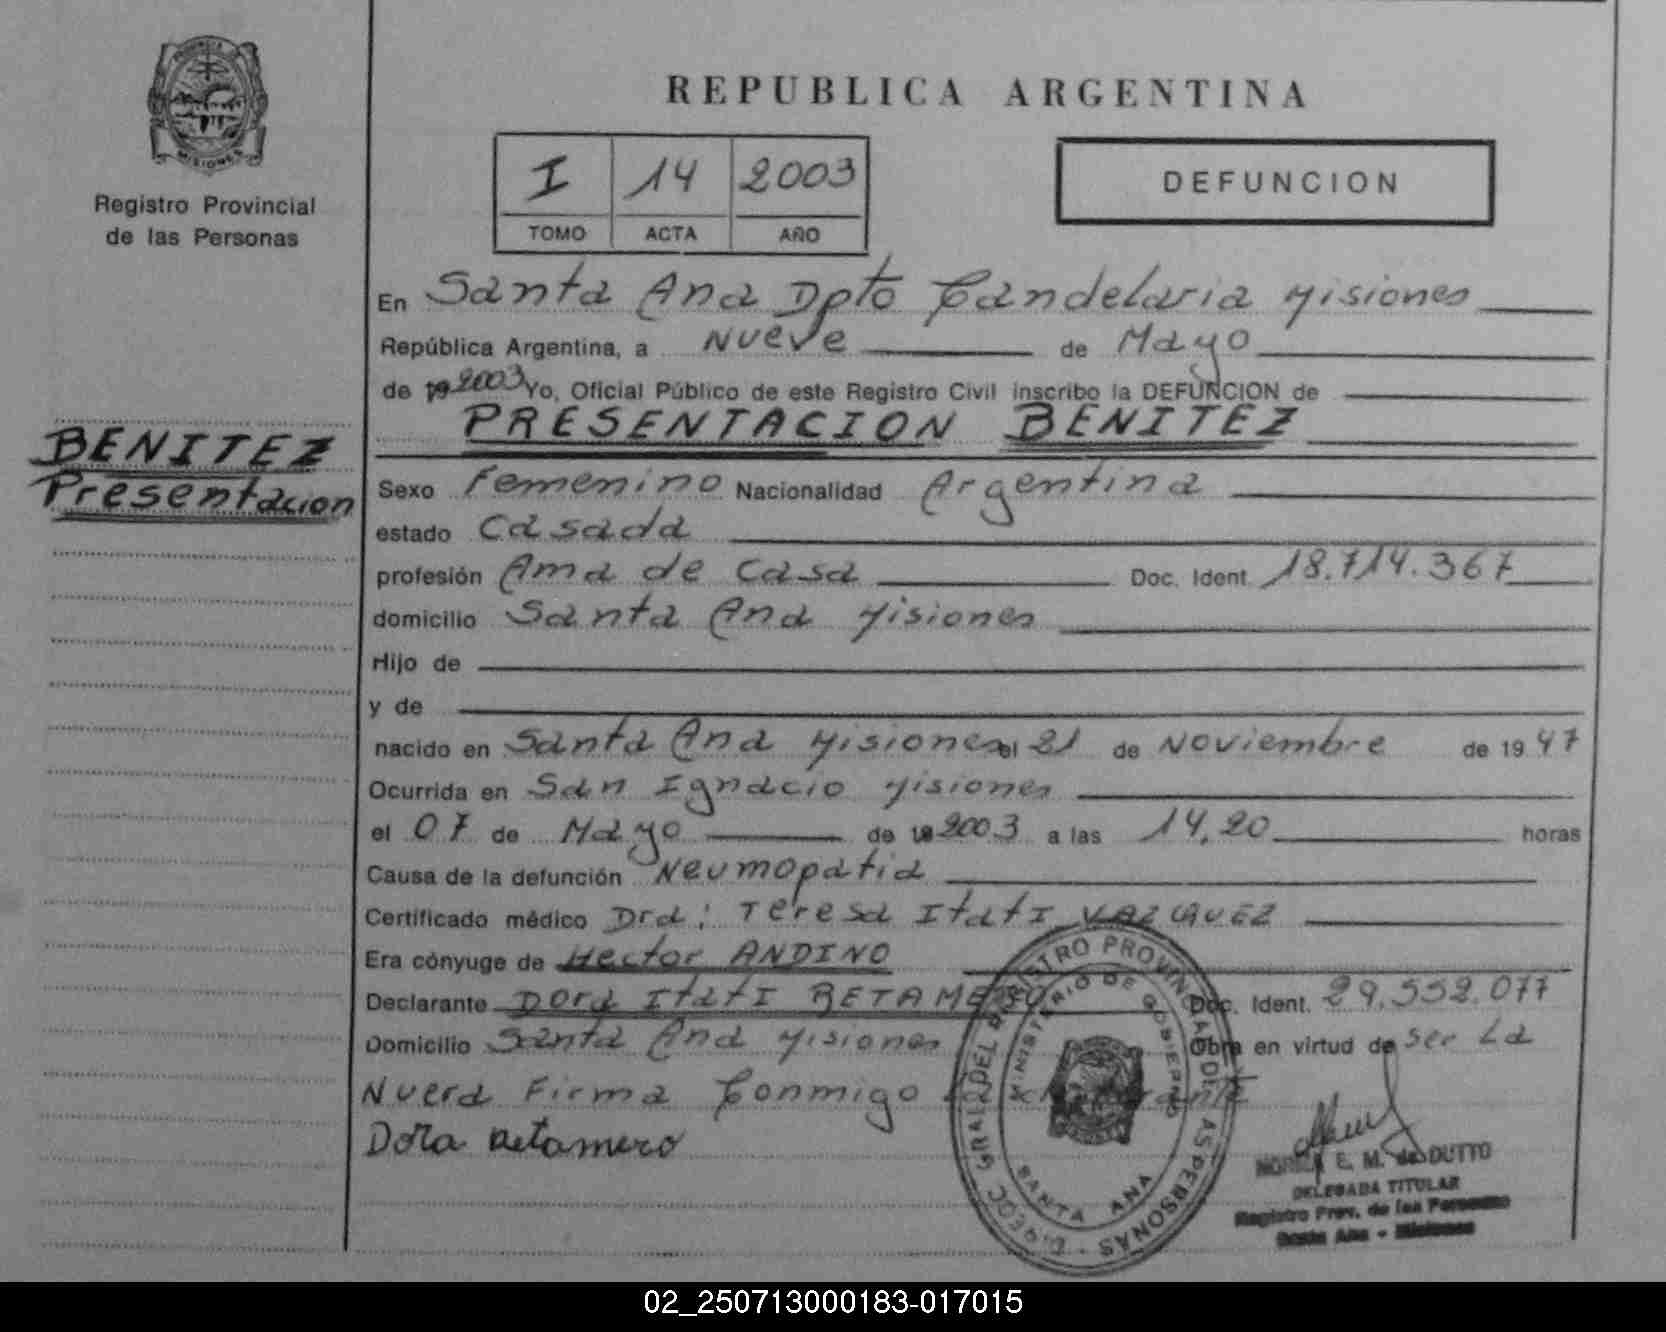 PROVINCIA DE
MISIONES
Registro Provincial
de las Personas
BENITEZ
Presentacion
REPUBLICA ARGENTINA
I 14 2003
TOMO ACTA AÑO
DEFUNCION
En Santa Ana Dpto Candelaria Misiones
República Argentina, a Nueve de Mayo
de 19 2003 Yo, Oficial Público de este Registro Civil inscribo la DEFUNCION de
PRESENTACION BENITEZ
Sexo Femenino Nacionalidad Argentina
estado Casada
profesión Ama de Casa Doc. Ident. 18.714.367
domicilio Santa Ana Misiones
Hijo de
y de
nacido en Santa Ana Misiones el 21 de Noviembre de 19 47
Ocurrida en San Ignacio Misiones
el 07 de Mayo de 19 2003 a las 14,20 horas
Causa de la defunción Neumopatia
Certificado médico Dra: Teresa Itati VAZQUEZ
Era cónyuge de Hector ANDINO
Declarante Dora Itati RETAMERO Doc. Ident. 29.552.077
Domicilio Santa Ana Misiones Obra en virtud de ser La
Nuera Firma Conmigo
Dora Retamero
REGISTRO PROVINCIAL DE LAS PERSONAS
MINISTERIO DE GOBIERNO
SANTA ANA
E. M. de DUTTO
DELEGADA TITULAR
Registro Prov. de las Personas
Santa Ana - Misiones
02_250713000183-017015